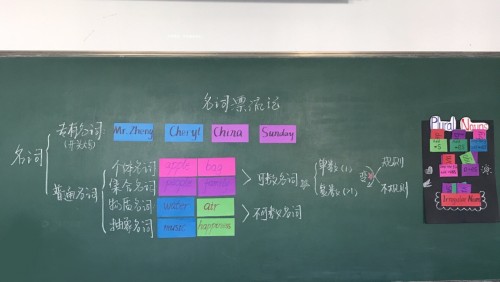 名词漂流记
名词
专有名词:
(开头大写)
Mr. Zheng
Cheryl
China
Sunday
普通名词
个体名词
apple
bag
集合名词
people
family
物质名词
water
air
抽象名词
music
happiness
可数名词
不可数名词
单数(1)
复数(>1)
变
规则
不规则
Plural Nouns
Irregular Nouns